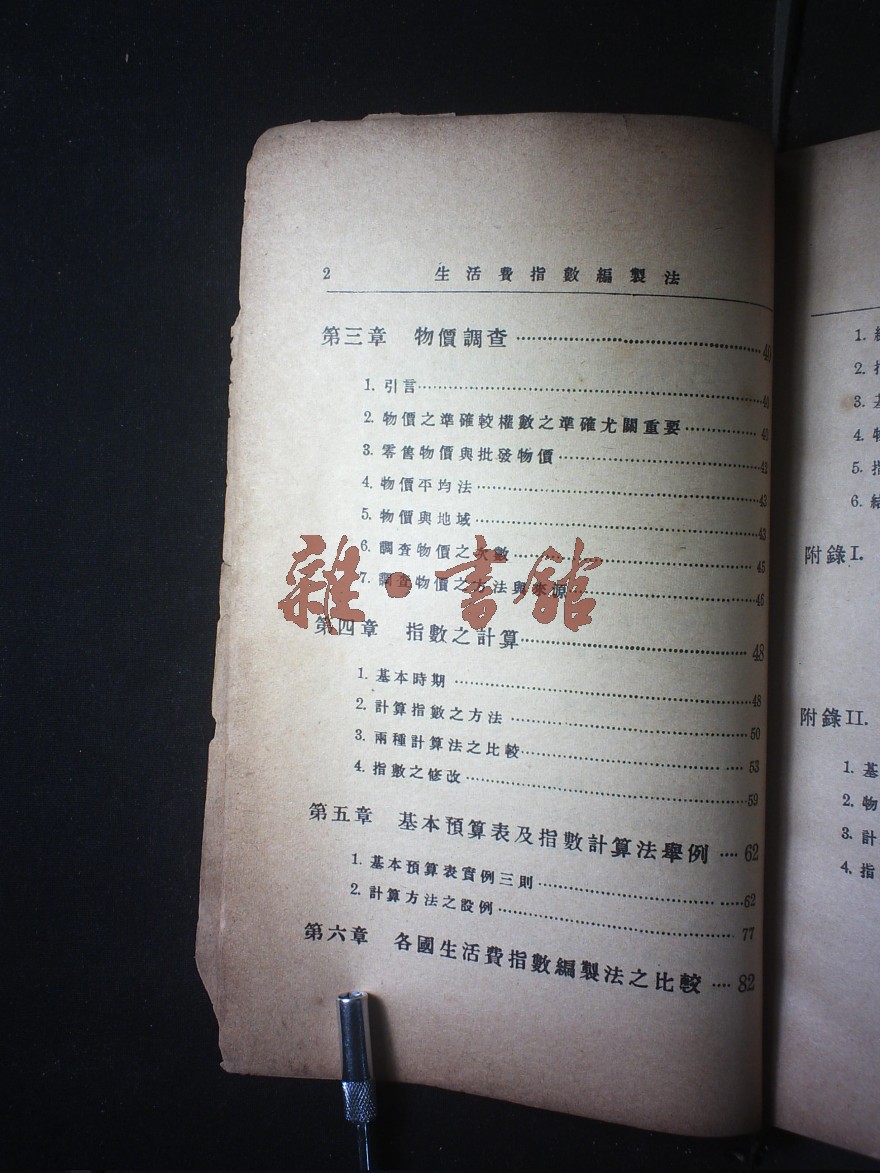 2 生活費指數編製法
第三章 物價調查 40
1. 引言 40
2. 物價之準確較權數之準確尤關重要 40
3. 零售物價與批發物價 42
4. 物價平均法 43
5. 物價與地域 43
6. 調查物價之次數 45
7. 調查物價之方法與來源 46
第四章 指數之計算 48
1. 基本時期 48
2. 計算指數之方法 50
3. 兩種計算法之比較 53
4. 指數之修改 59
第五章 基本預算表及指數計算法舉例 62
1. 基本預算表實例三則 62
2. 計算方法之設例 77
第六章 各國生活費指數編製法之比較 82
雜·書館
1.
2.
3.
4. 物
5. 指
6. 結
附錄I.
附錄II.
1. 基
2. 物
3. 計
4. 指